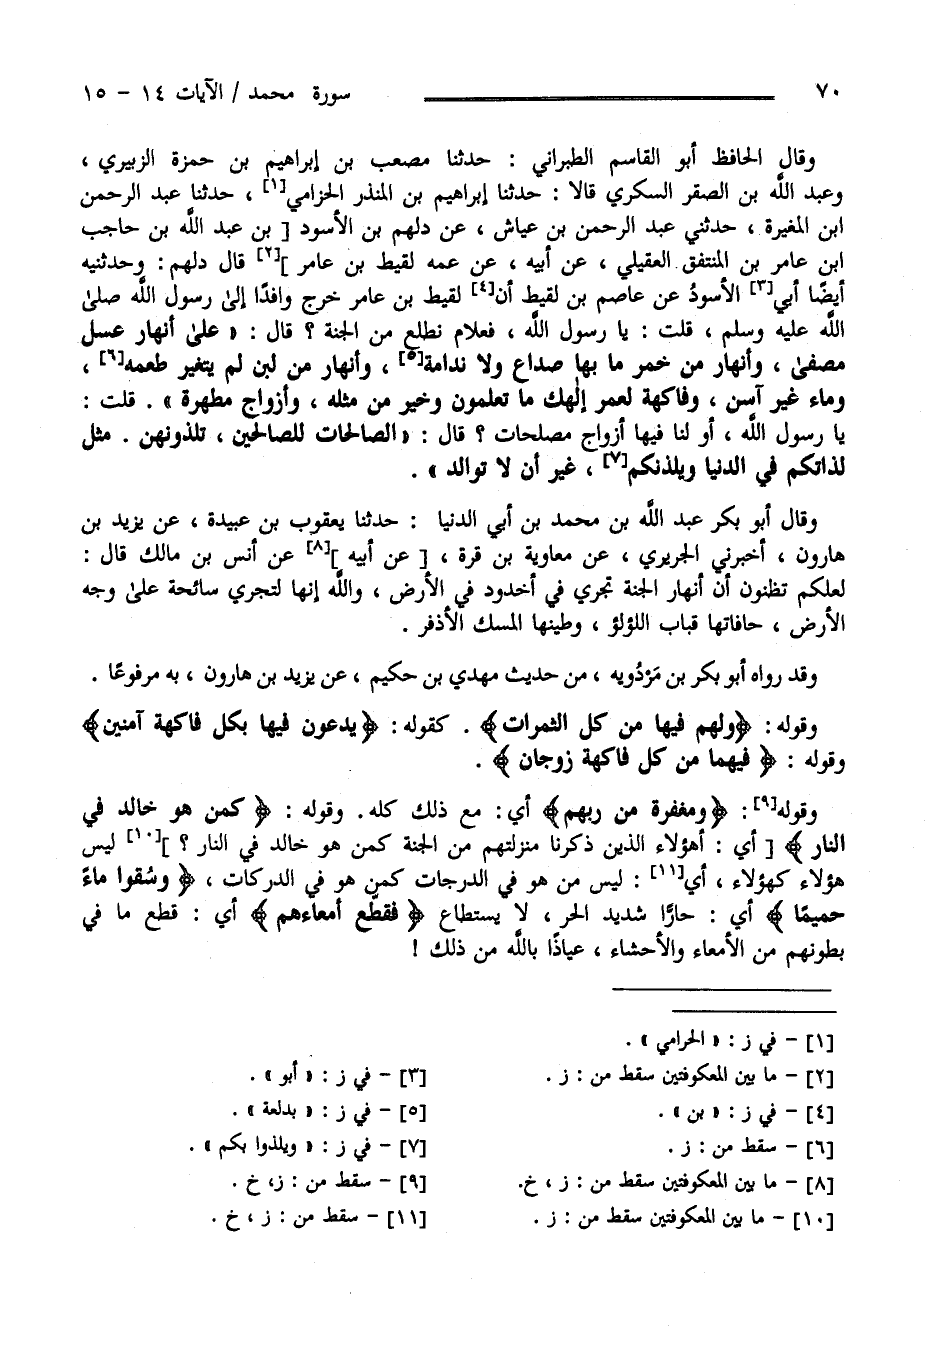 ٧٠ سورة محمد / الآيات ١٤ - ١٥
وقال الحافظ أبو القاسم الطبراني : حدثنا مصعب بن إبراهيم بن حمزة الزبيري ،
وعبد الله بن الصقر السكري قالا : حدثنا إبراهيم بن المنذر الحزامي[١] ، حدثنا عبد الرحمن
ابن المغيرة ، حدثني عبد الرحمن بن عياش ، عن دلهم بن الأسود [ بن عبد الله بن حاجب
ابن عامر بن المنتفق العقيلي ، عن أبيه ، عن عمه لقيط بن عامر ][٢] قال دلهم : وحدثنيه
أيضًا أبي[٣] الأسودُ عن عاصم بن لقيط أن[٤] لقيط بن عامر خرج وافدًا إلى رسول الله صلى
الله عليه وسلم ، قلت : يا رسول الله ، فعلام نطلع من الجنة ؟ قال : « على أنهار عسل
مصفى ، وأنهار من خمر ما بها صداع ولا ندامة[٥] ، وأنهار من لبن لم يتغير طعمه[٦] ،
وماء غير آسن ، وفاكهة لعمر إلهك ما تعلمون وخير من مثله ، وأزواج مطهرة » . قلت :
يا رسول الله ، أو لنا فيها أزواج مصلحات ؟ قال : « الصالحات للصالحين ، تلذونهن . مثل
لذاتكم في الدنيا ويلذنكم[٧] ، غير أن لا توالد » .
وقال أبو بكر عبد الله بن محمد بن أبي الدنيا : حدثنا يعقوب بن عبيدة ، عن يزيد بن
هارون ، أخبرني الجريري ، عن معاوية بن قرة ، [ عن أبيه ][٨] عن أنس بن مالك قال :
لعلكم تظنون أن أنهار الجنة تجري في أخدود في الأرض ، والله إنها لتجري سائحة على وجه
الأرض ، حافاتها قباب اللؤلؤ ، وطينها المسك الأذفر .
وقد رواه أبو بكر بن مَرْدُويه ، من حديث مهدي بن حكيم ، عن يزيد بن هارون ، به مرفوعًا .
وقوله : ﴿ولهم فيها من كل الثمرات﴾ . كقوله : ﴿يدعون فيها بكل فاكهة آمنين﴾
وقوله : ﴿ فيهما من كل فاكهة زوجان ﴾ .
وقوله[٩] : ﴿ومغفرة من ربهم﴾ أي : مع ذلك كله . وقوله : ﴿ كمن هو خالد في
النار ﴾ [ أي : أهؤلاء الذين ذكرنا منزلتهم من الجنة كمن هو خالد في النار ؟ ][١٠] ليس
هؤلاء كهؤلاء ، أي[١١] : ليس من هو في الدرجات كمن هو في الدركات ، ﴿ وسُقوا ماءً
حميمًا ﴾ أي : حارًّا شديد الحر ، لا يستطاع ﴿ فقطَّع أمعاءهم ﴾ أي : قطع ما في
بطونهم من الأمعاء والأحشاء ، عياذًا بالله من ذلك !
[١] – في ز : « الحرامي » .
[٢] – ما بين المعكوفتين سقط من : ز . [٣] – في ز : « أبو » .
[٤] – في ز : « بن » . [٥] – في ز : « بدلعة » .
[٦] – سقط من : ز . [٧] – في ز : « ويلذوا بكم » .
[٨] – ما بين المعكوفتين سقط من : ز ، خ. [٩] – سقط من : ز، خ .
[١٠] – ما بين المعكوفتين سقط من : ز . [١١] – سقط من : ز ، خ .